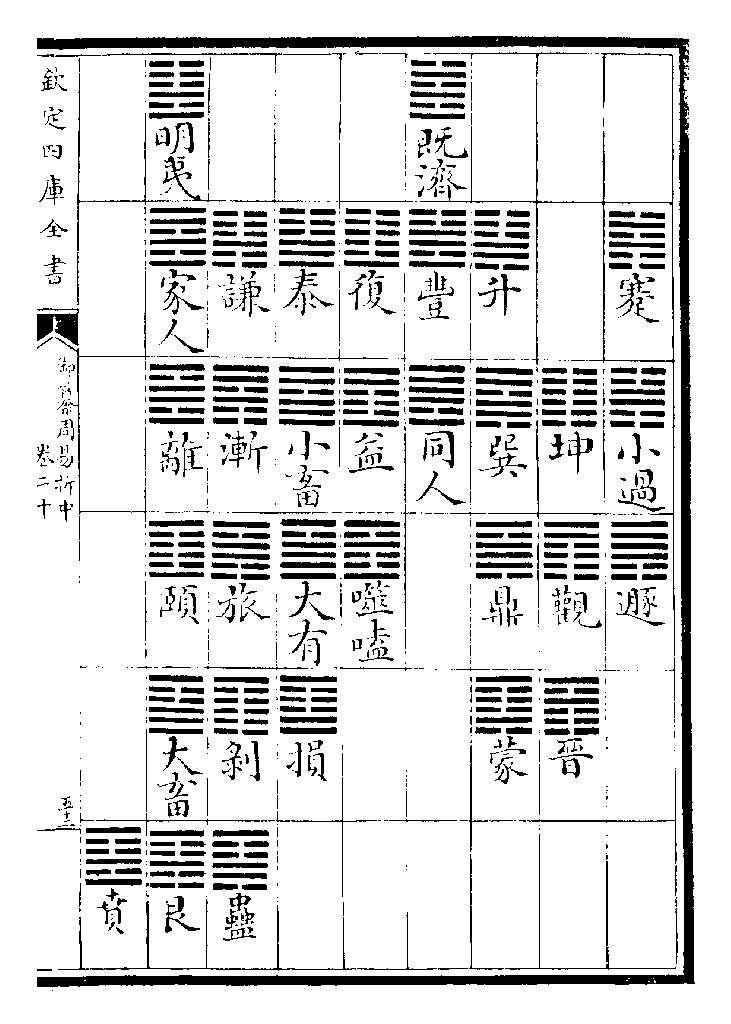 蹇
小過
遯
坤
觀
晉
升
巽
鼎
蒙
既濟
豐
同人
復
益
噬嗑
泰
小畜
大有
損
謙
漸
旅
剝
蠱
明夷
家人
離
頤
大畜
艮
賁
欽定四庫全書
御纂周易折中
卷二十